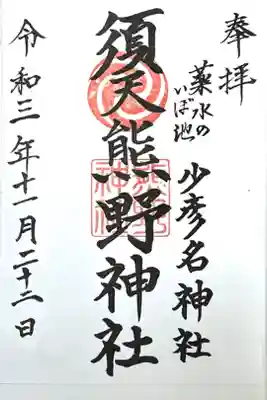 奉拝
薬水の
いぼ池
少彦名神社
須天熊野神社
熊野
神社
令和三年十一月二十二日